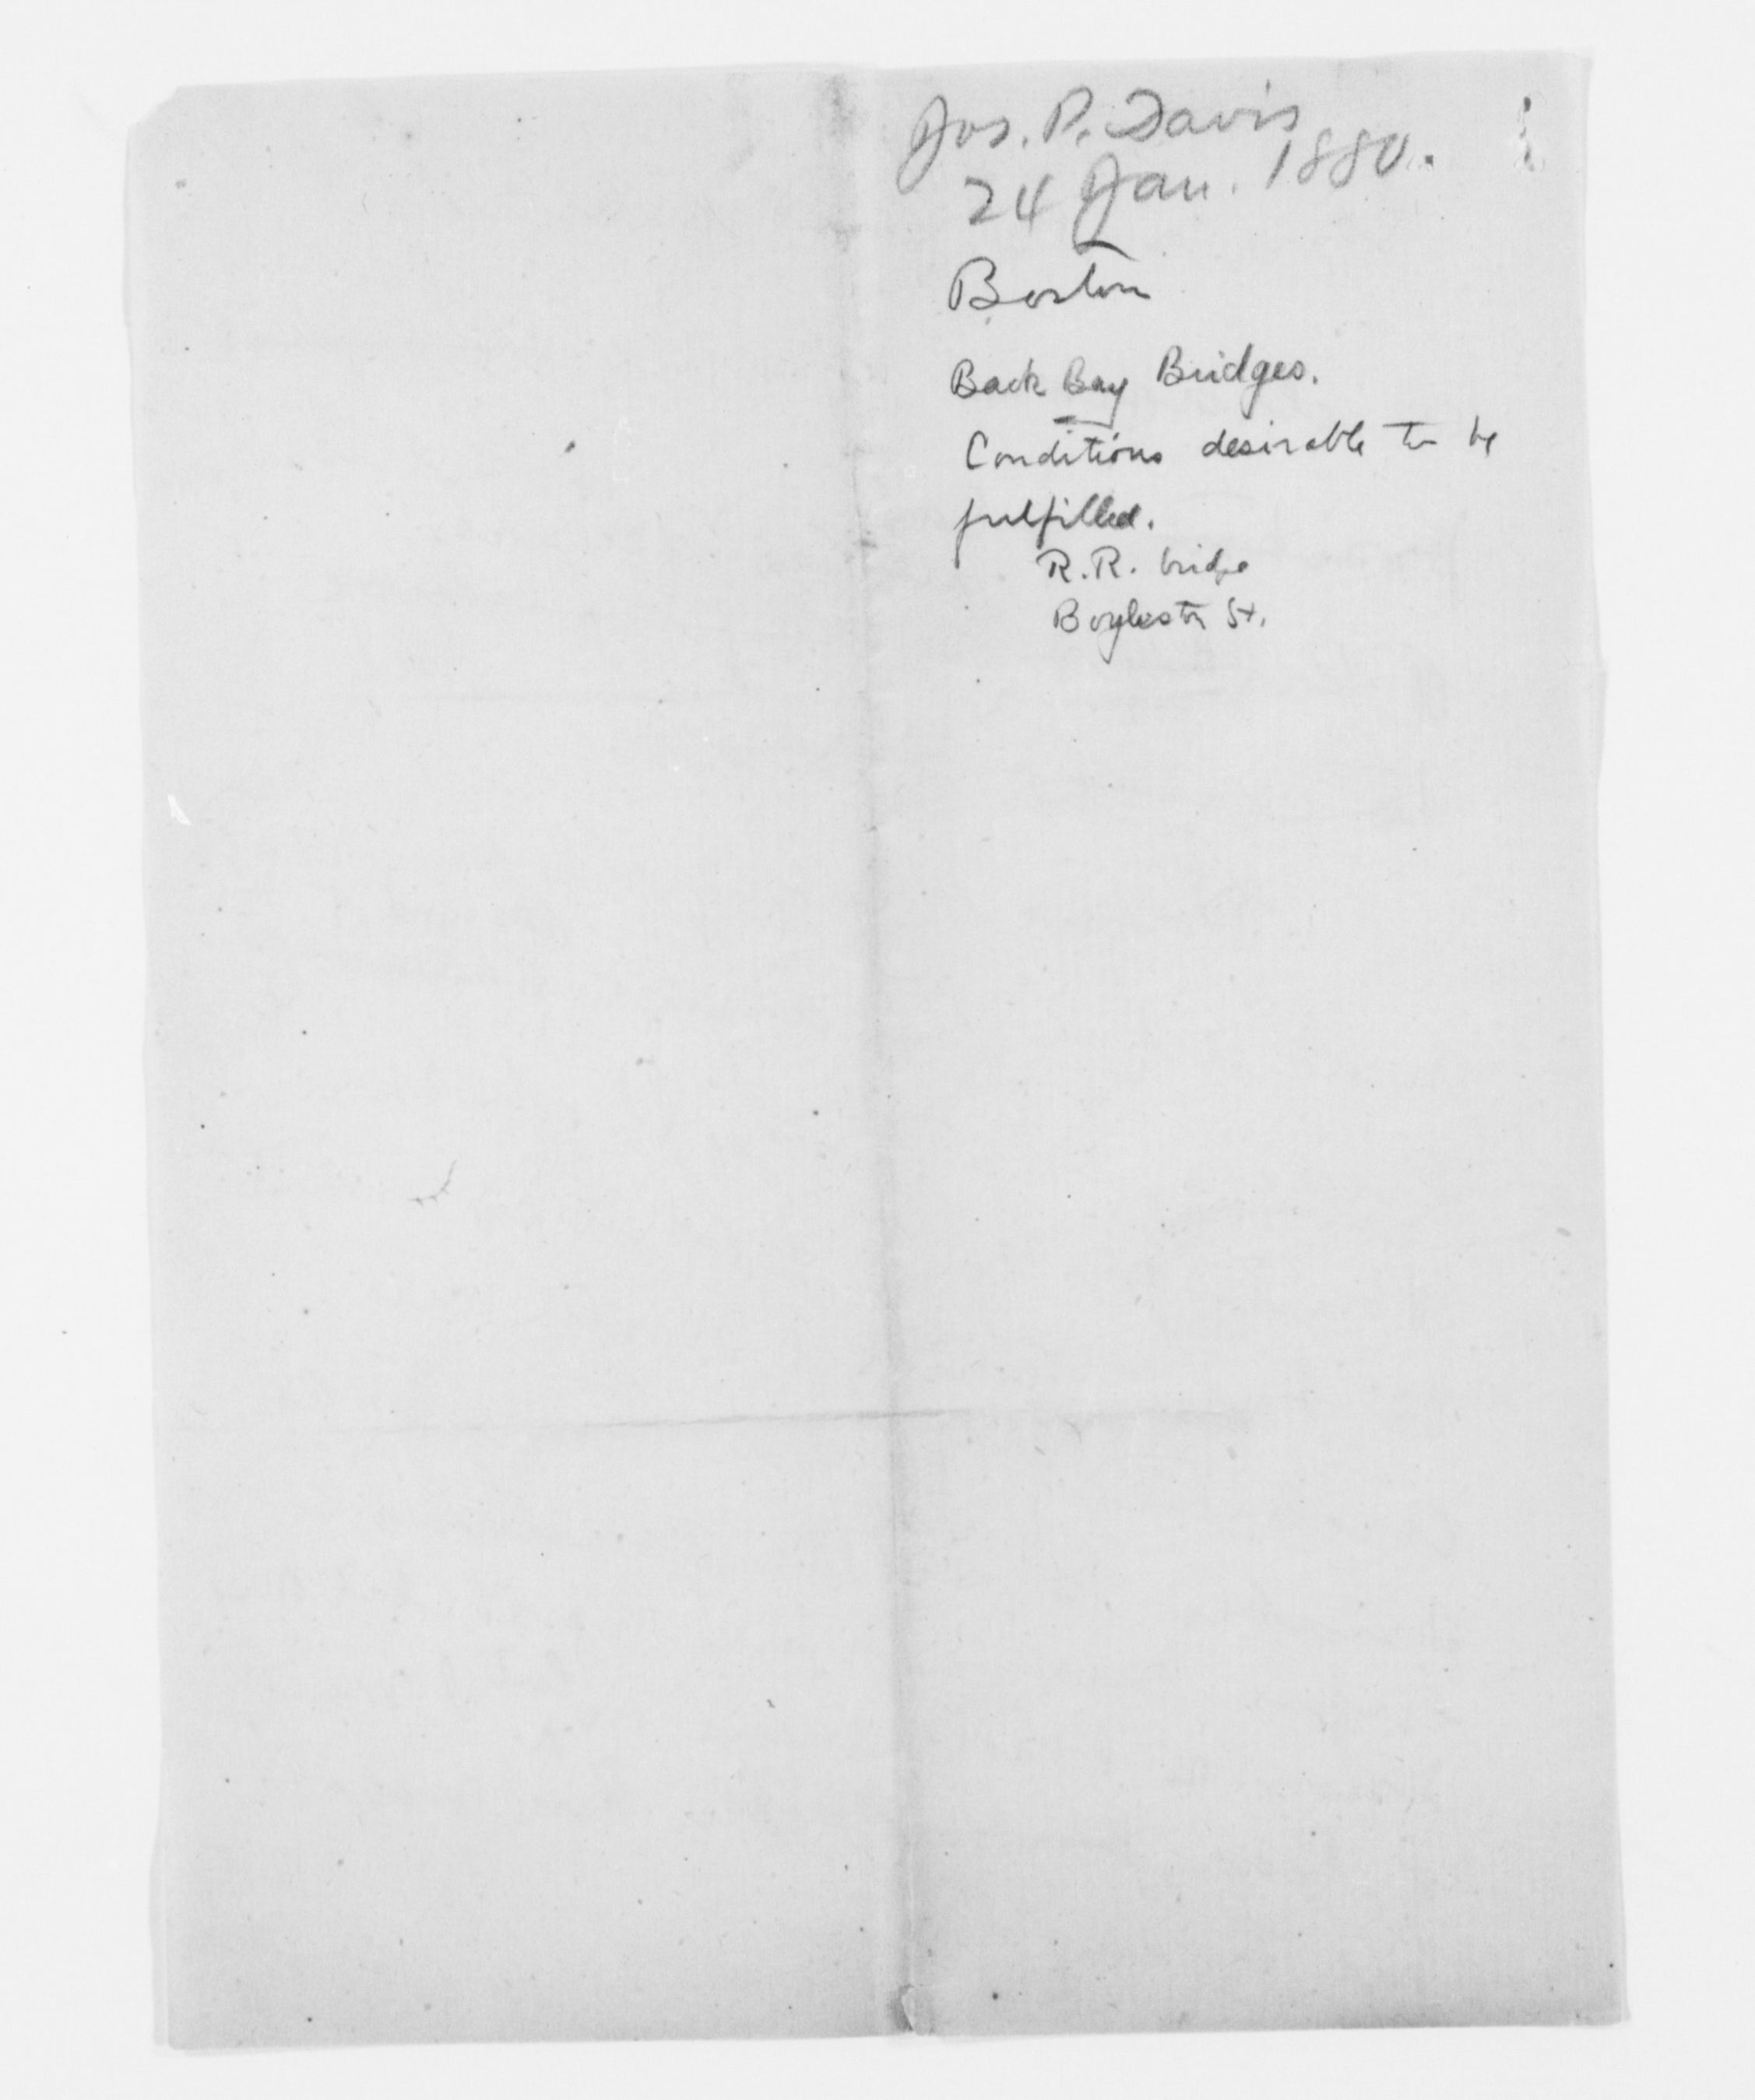 Jos. P. Davis
24 Jan. 1880.
Boston
Back Bay Bridges.
Conditions desirable to be
fulfilled.
R.R. bridge
Boylston St.